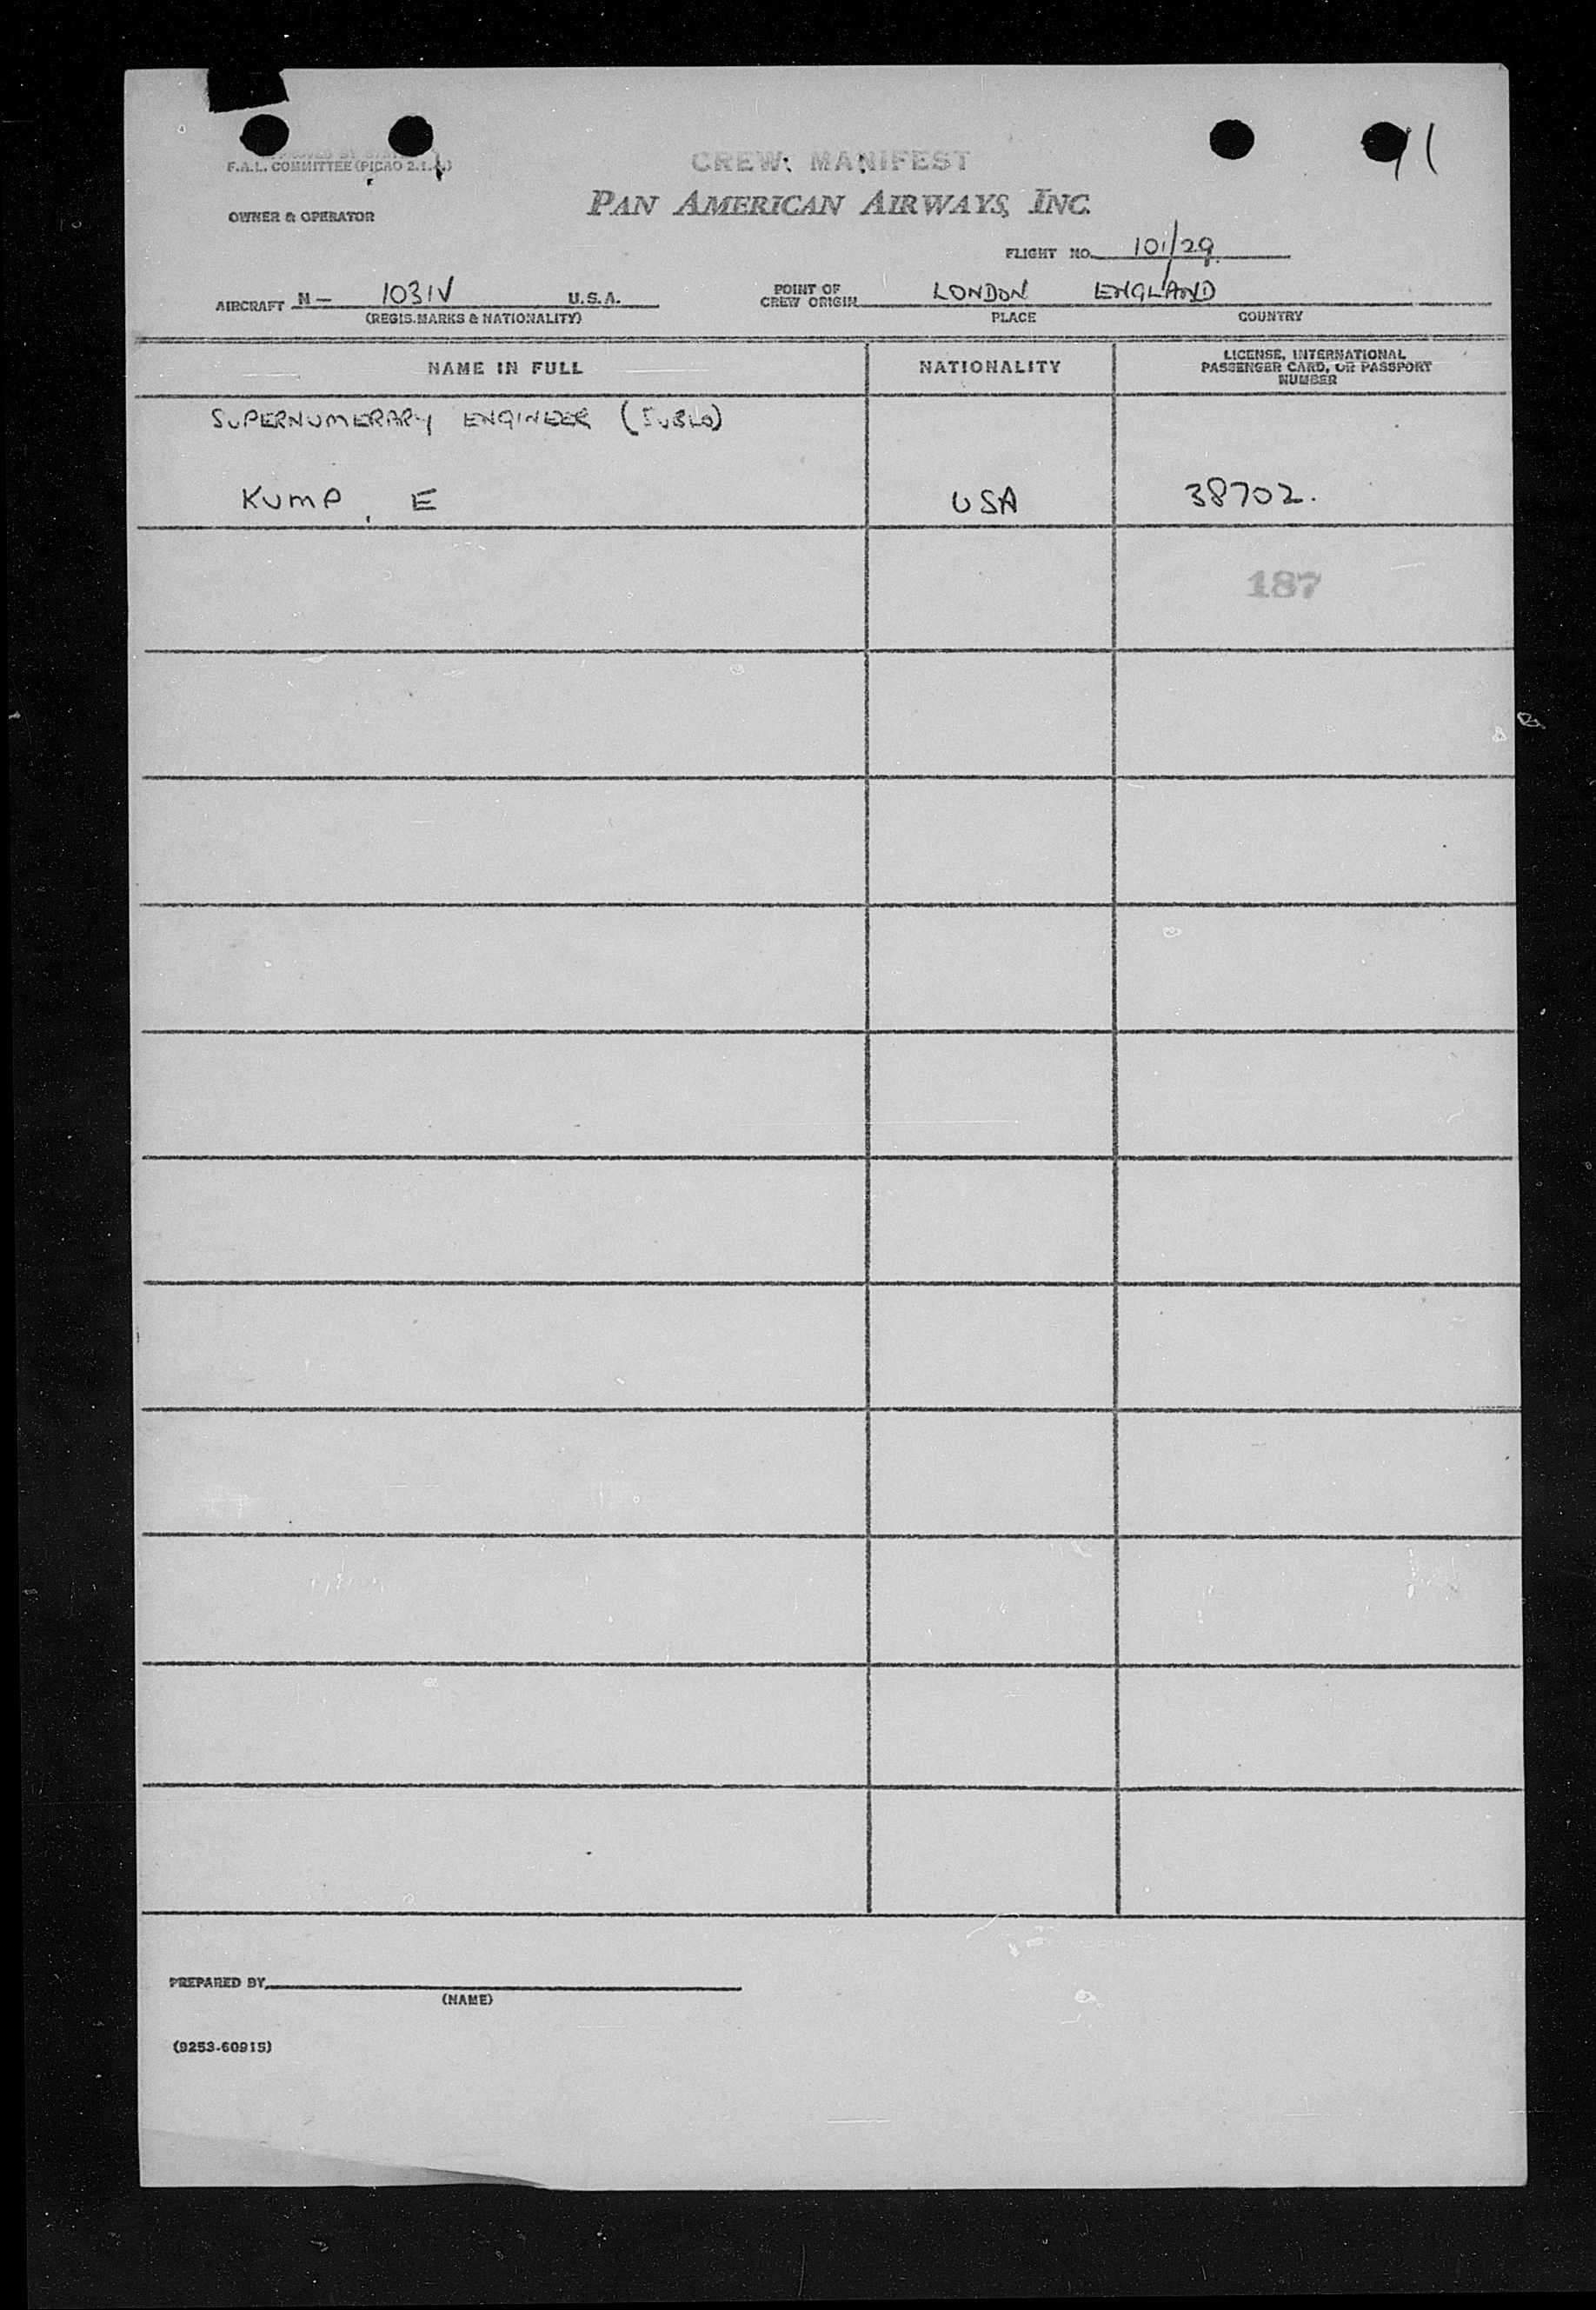 F.A.L. COMMITTEE (PICAO 2.1.4.)
CREW MANIFEST
PAN AMERICAN AIRWAYS, INC.
OWNER & OPERATOR
FLIGHT NO. 101/29.
AIRCRAFT N- 1031V U.S.A.
(REGIS. MARKS & NATIONALITY)
POINT OF
CREW ORIGIN LONDON ENGLAND
PLACE COUNTRY
NAME IN FULL NATIONALITY LICENSE, INTERNATIONAL
PASSENGER CARD, OR PASSPORT
NUMBER
SUPERNUMERARY ENGINEER
KUMP, E USA 38702.
187
PREPARED BY
(NAME)
(9253-60915)